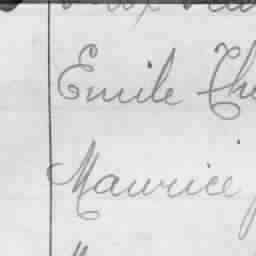 Emile The
Maurice